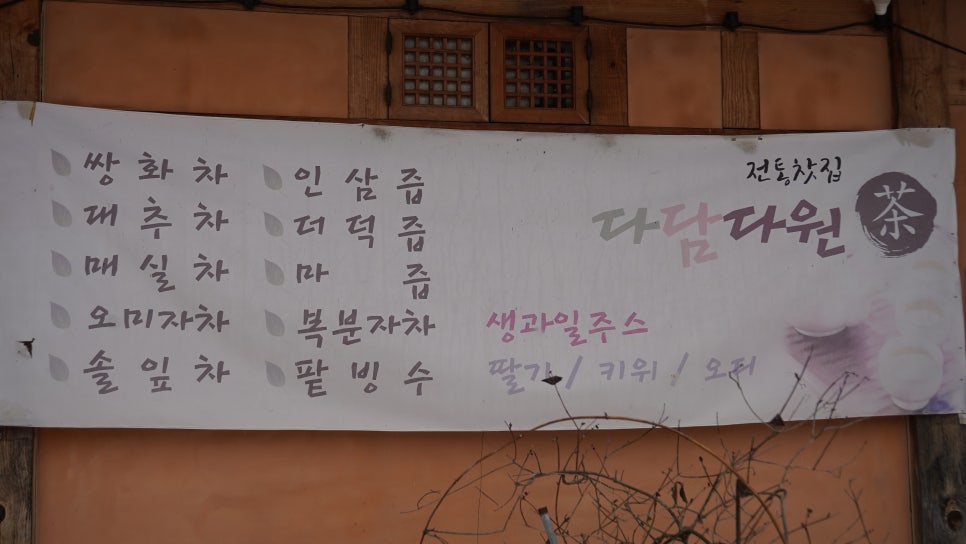 쌍화차
대추차
매실차
오미자차
솔잎차
인삼즙
더덕즙
마 즙
복분자차
팥빙수
전통찻집
다담다원
茶
생과일주스
딸기 / 키위 / 오디